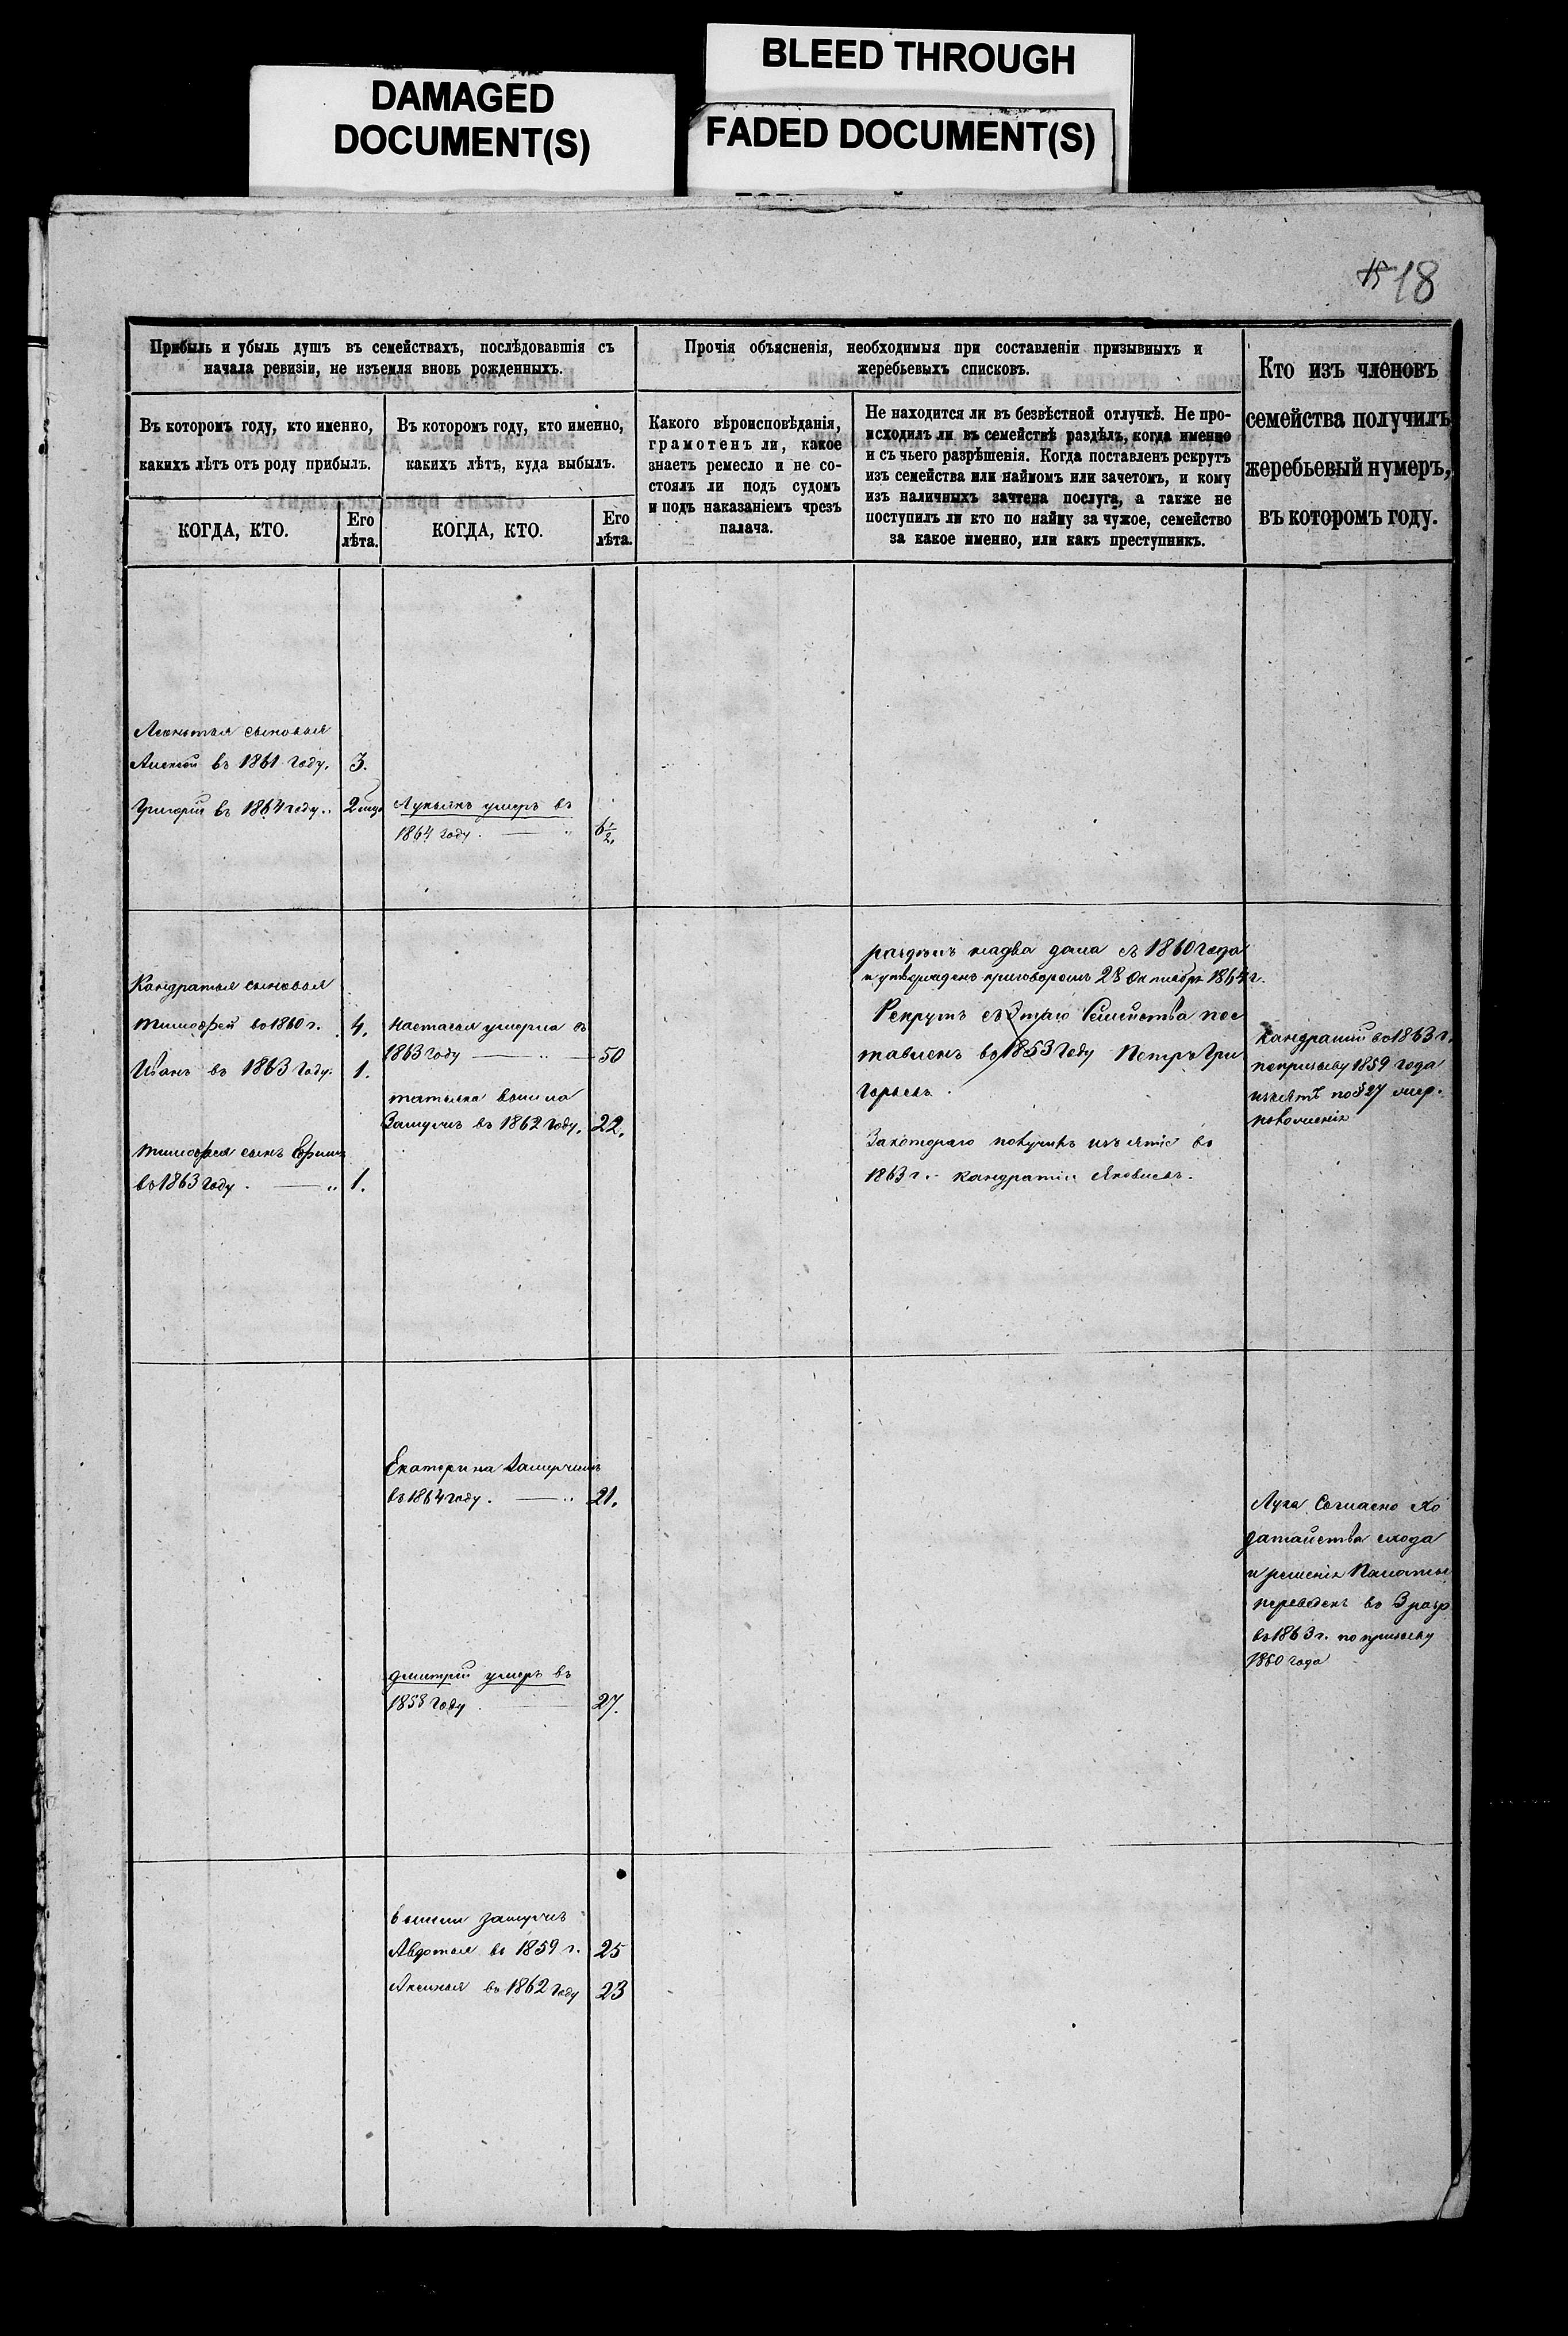 DAMAGED
DOCUMENT(S)
BLEED THROUGH
FADED DOCUMENT(S)
15 18
Прибыль и убыль душъ въ семействахъ, послѣдовавшія съ
начала ревизіи, не изъемля вновь рожденныхъ.
Въ которомъ году, кто именно,
какихъ лѣтъ отъ роду прибылъ.
КОГДА, КТО.
Его
лѣта.
Въ которомъ году, кто именно,
какихъ лѣтъ, куда выбылъ.
КОГДА, КТО.
Его
лѣта.
Прочія объясненія, необходимыя при составленіи призывныхъ и
жеребьевыхъ списковъ.
Какого вѣроисповѣданія,
грамотенъ ли, какое
знаетъ ремесло и не со-
стоялъ ли подъ судомъ
и подъ наказаніемъ чрезъ
палача.
Не находится ли въ безвѣстной отлучкѣ. Не про-
исходилъ ли въ семействѣ раздѣлъ, когда именно
и съ чьего разрѣшенія. Когда поставленъ рекрутъ
изъ семейства или наймомъ или зачетомъ, и кому
изъ наличныхъ зачтена послуга, а также не
поступилъ ли кто по найму за чужое, семейство
за какое именно, или какъ преступникъ.
Кто изъ членовъ
семейства получилъ
жеребьевый нумеръ,
въ которомъ году.
Леонтья сыновья
Алексѣй въ 1861 году. 3.
Григорій въ 1864 году. 2
Лукьянъ умеръ въ
1864 году. 6 1/2.
Кандратья сыновья
тимофей во 1860 г. 4.
Иванъ въ 1863 году. 1.
тимофея сынъ Ефимъ
въ 1863 году. 1.
Настасья умерла въ
1863 году 50
татьяна вышла
Замужъ въ 1862 году. 22.
раздѣлъ надва дома съ 1860 года
и утвержденъ приговоромъ 28 Октября 1864 г.
Рекрутъ съ Этаго Семейства пос
тавленъ во 1853 Году Петръ Гри
горьевъ.
Закотораго получилъ изъятіе во
1863 г. Кандратій Яковлевъ.
Кандратій во 1863 г.
попризыву 1859 года
изъятъ по § 27
положенія
Екатерина Замужъ
въ 1864 году. 21.
дмитрій умеръ въ
1858 году 27.
Лука Согласно Хо
датайства схода
и решенія Палаты
переведенъ во 3 разр
въ 1863 г. по призыву
1860 года
вышли замужъ
Авдотья въ 1859 г. 25
Аксинья въ 1862 году 23